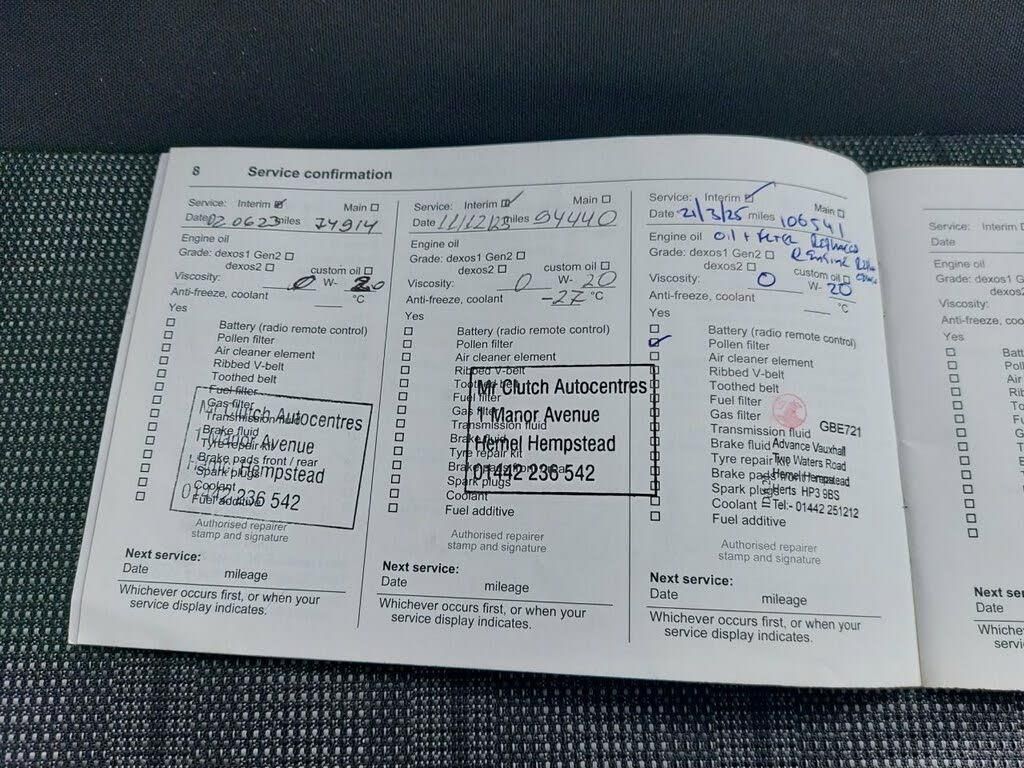 8 Service confirmation
Service: Interim Main
Date 02 06 23 miles 74914
Engine oil
Grade: dexos1 Gen2
dexos2 custom oil
Viscosity: 0 W- 20
Anti-freeze, coolant °C
Yes
Battery (radio remote control)
Pollen filter
Air cleaner element
Ribbed V-belt
Toothed belt
Fuel filter
Gas filter
Transmission fluid
Brake fluid
Tyre repair kit
Brake pads front / rear
Spark plugs
Coolant
Fuel additive
Mr Clutch Autocentres
1 Manor Avenue
Hemel Hempstead
01442 236 542
Authorised repairer
stamp and signature
Next service:
Date mileage
Whichever occurs first, or when your
service display indicates.
Service: Interim Main
Date 11/12/23 miles 94440
Engine oil
Grade: dexos1 Gen2
dexos2 custom oil
Viscosity: 0 W- 20
Anti-freeze, coolant -27 °C
Yes
Battery (radio remote control)
Pollen filter
Air cleaner element
Ribbed V-belt
Toothed belt
Fuel filter
Gas filter
Brake
Tyre repair kit
Brake pads
Spark plugs
Coolant
Fuel additive
Mr Clutch Autocentres
1 Manor Avenue
Hemel Hempstead
01442 236 542
Authorised repairer
stamp and signature
Next service:
Date mileage
Whichever occurs first, or when your
service display indicates.
Service: Interim Main
Date 21/3/25 miles 106541
Engine oil oil + filter Replaced
Grade: dexos1 Gen2 Engine
dexos2 custom oil
Viscosity: 0 W- 20
Anti-freeze, coolant °C
Yes
Battery (radio remote control)
Pollen filter
Air cleaner element
Ribbed V-belt
Toothed belt
Fuel filter
Gas filter
Transmission fluid
Brake fluid
Tyre repair kit
Brake pads
Spark plugs
Coolant
Fuel additive
GBE721
Advance Vauxhall
Two Waters Road
Hemel Hempstead
Herts HP3 9BS
Tel:- 01442 251212
Authorised repairer
stamp and signature
Next service:
Date mileage
Whichever occurs first, or when your
service display indicates.
Service: Interim
Date
Engine oil
Grade: dexos1
Viscosity:
Anti-freeze,
Yes
Next
Date